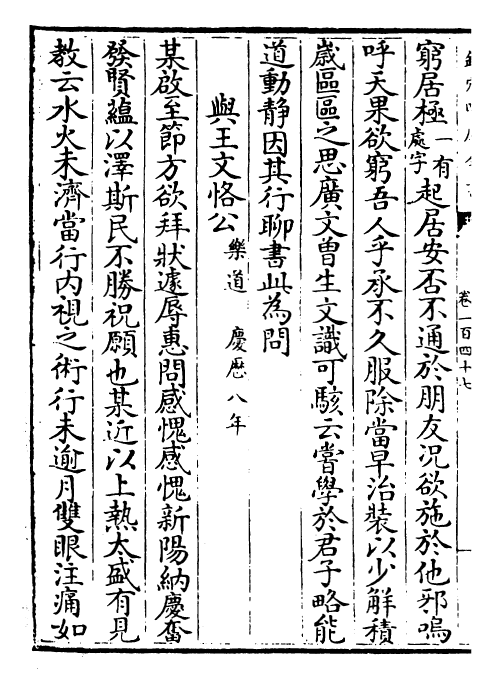 窮居極一有處字起居安否不通於朋友況欲施於他邪嗚
呼天果欲窮吾人乎承不久服除當早治裝以少解積
嵗區區之思廣文曾生文識可駭云嘗學於君子略能
道動静因其行聊書此為問
與王文恪公樂道 慶厯八年
某啟至節方欲拜狀遽辱惠問感愧感愧新陽納慶奮
發賢藴以澤斯民不勝祝願也某近以上熱太盛有見
教云水火未濟當行内視之術行未逾月雙眼注痛如
卷一百四十七